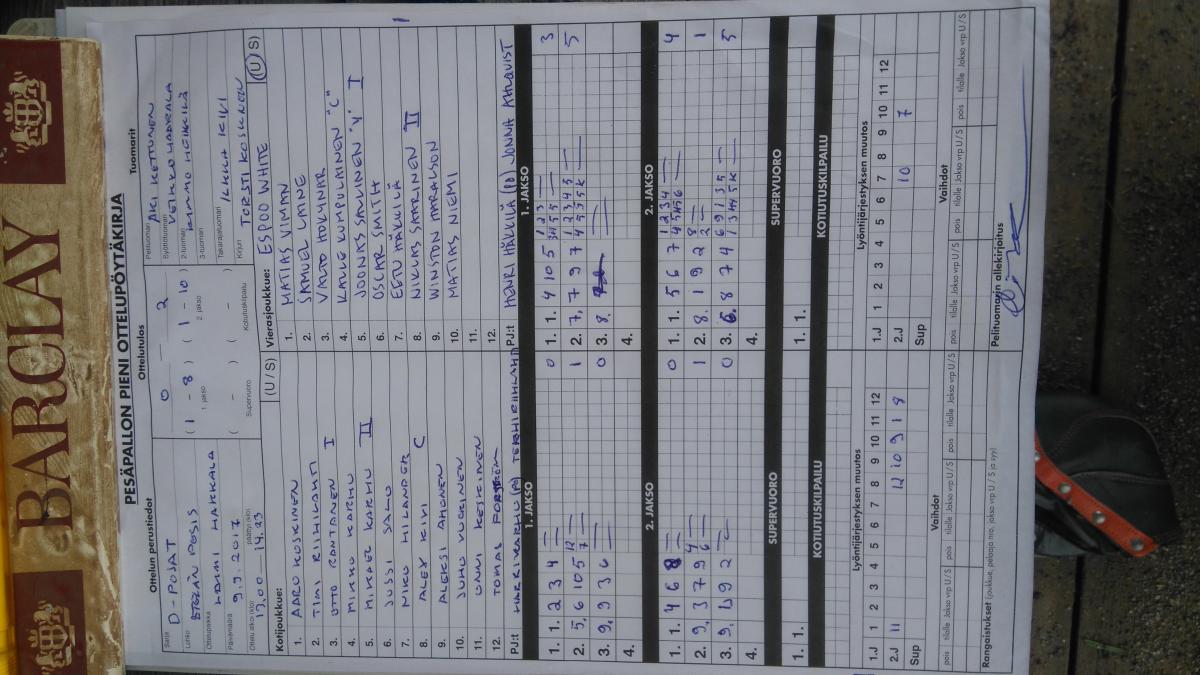 BARCLAY
PESÄPALLON PIENI OTTELUPÖYTÄKIRJA
Ottelun perustiedot
Ottelutulos
Tuomarit
Sarja D-POJAT
Lohko ETELÄN POSIS
Ottelupaikka
Päivämäärä 9.9.2017
Ottelu alkoi (klo) 13.00 päättyi (klo) 14.23
0 — 2
(1 - 8) (1 - 10)
1. jakso 2. jakso
( - ) ( - )
Supervuoro Kotiutuskilpailu
Pelituomari AKI KETTUNEN
Syöttötuomari VEIKKO HAAVALA
2-tuomari KIMMO HEIKKILÄ
3-tuomari
Takarajatuomari ILKKA KIVI
Kirjuri TORSTI KOSKINEN
Kotijoukkue: (U / S)
1. AARO KOSKINEN
2. TIMI RIIHILAHTI
3. OTTO RANTANEN I
4. MIKKO KARHU
5. MIKAEL KARHU II
6. JUSSI SALO
7. NIKO HILANDER
8. ALEX KIVI C
9. ALEKSI AHONEN
10. JUHO VUORINEN
11. ONNI KESKINEN
12. TOMAS
PJ:t HARRI KARHU
Vierasjoukkue: ESPOO WHITE (U / S)
1. MATIAS VIMAN
2. SAMUEL LAINE
3. VALTO HOKUNAR
4. KALLE KUMPULAINEN "C"
5. JOONAS SAVLINEN "V" I
6. OSCAR SMITH
7. EETU HÄKKILÄ I
8. NIKLAS SAARINEN II
9. WINSTON HARALSON
10. MATIAS NIEMI
11.
12.
PJ:t HENRI HÄKKILÄ (PJ) JONNA AHLQVIST
1. JAKSO 1. JAKSO
1. 1. 2 3 4 — 0
2. 5. 6 10 5 12 7 — 1
3. 9. 9 3 6 — 0
4.
1. 1. 4 10 5 3
2. 7. 7 9 7 5
3. 8.
4.
2. JAKSO 2. JAKSO
1. 1. 4 6 8 — 0
2. 9. 3 7 9 4 6 — 1
3. 9. 9 2 — 0
4.
1. 1. 5 6 7 4
2. 8. 1 9 2 1
3. 6. 8 7 4 5
4.
SUPERVUORO SUPERVUORO
1. 1. 1. 1.
KOTIUTUSKILPAILU KOTIUTUSKILPAILU
Lyöntijärjestyksen muutos Lyöntijärjestyksen muutos
1 2 3 4 5 6 7 8 9 10 11 12 1 2 3 4 5 6 7 8 9 10 11 12
1.J 1.J
2.J 11 12 10 9 1 8 2.J 10 7
Sup Sup
Vaihdot Vaihdot
pois tilalle Jakso vrp U / S pois tilalle Jakso vrp U / S pois tilalle Jakso vrp U / S pois tilalle Jakso vrp U / S
Rangaistukset (joukkue, pelaaja nro, jakso vrp U / S ja syy)
Pelituomarin allekirjoitus